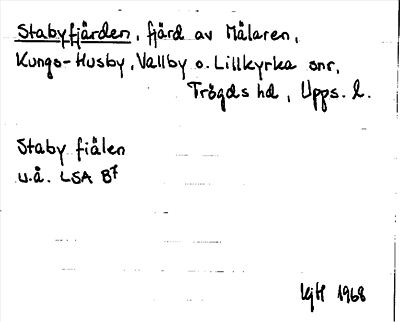 Stabyfjärden, fjärd av Mälaren,
Kungs-Husby, Vallby o. Lillkyrka snr,
Trögds hd, Upps. l.
Staby fiälen
u.å. LSA B7
1968